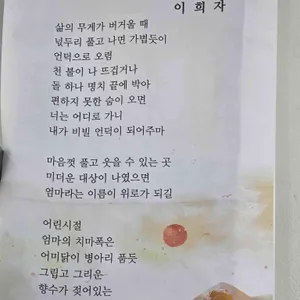 이 희 자
삶의 무게가 버거울 때
넋두리 풀고 나면 가볍듯이
언덕으로 오렴
천 불이 나 뜨겁거나
돌 하나 명치 끝에 박아
편하지 못한 숨이 오면
너는 어디로 가니
내가 비빌 언덕이 되어주마
마음껏 풀고 웃을 수 있는 곳
미더운 대상이 나였으면
엄마라는 이름이 위로가 되길
어린시절
엄마의 치마폭은
어미닭이 병아리 품듯
그립고 그리운
향수가 젖어있는